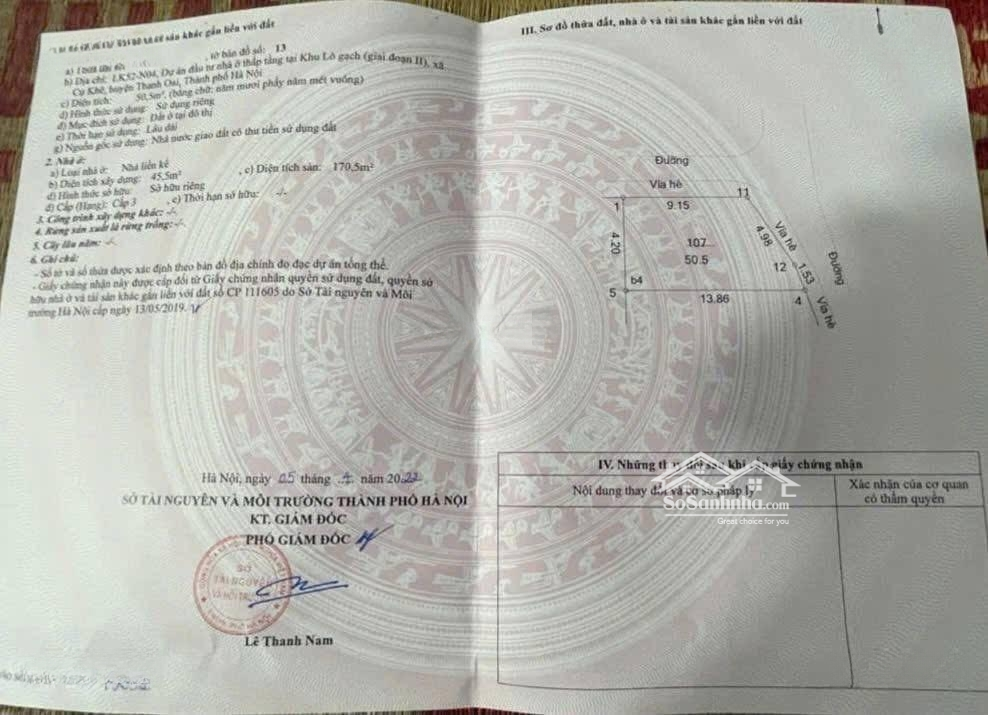 sản khác gắn liền với đất
, tờ bản đồ số: 13
b) Địa chỉ: LK52-N04, Dự án đầu tư nhà ở thấp tầng tại Khu Lò gạch (giai đoạn II), xã
Cự Khê, huyện Thanh Oai, Thành phố Hà Nội
c) Diện tích: 50,5m², (bằng chữ: năm mươi phẩy năm mét vuông)
d) Hình thức sử dụng: Sử dụng riêng
đ) Mục đích sử dụng: Đất ở tại đô thị
e) Thời hạn sử dụng: Lâu dài
g) Nguồn gốc sử dụng: Nhà nước giao đất có thu tiền sử dụng đất
2. Nhà ở:
a) Loại nhà ở: Nhà liền kề
b) Diện tích xây dựng: 45,5m² , c) Diện tích sàn: 170,5m²
d) Hình thức sở hữu: Sở hữu riêng
đ) Cấp (Hạng): Cấp 3 , e) Thời hạn sở hữu: -/-
3. Công trình xây dựng khác: -/-
4. Rừng sản xuất là rừng trồng: -/-
5. Cây lâu năm: -/-
6. Ghi chú:
- Số tờ và số thửa được xác định theo bản đồ địa chính đo đạc dự án tổng thể.
- Giấy chứng nhận này được cấp đổi từ Giấy chứng nhận quyền sử dụng đất, quyền sở
hữu nhà ở và tài sản khác gắn liền với đất số CP 111605 do Sở Tài nguyên và Môi
trường Hà Nội cấp ngày 13/05/2019.
Hà Nội, ngày 05 tháng 4 năm 2022
SỞ TÀI NGUYÊN VÀ MÔI TRƯỜNG THÀNH PHỐ HÀ NỘI
KT. GIÁM ĐỐC
PHÓ GIÁM ĐỐC
SỞ
TÀI NGUYÊN
VÀ MÔI TRƯỜNG
Lê Thanh Nam
III. Sơ đồ thửa đất, nhà ở và tài sản khác gắn liền với đất
Đường
Vỉa hè
1
9.15
11
4.20
107
50.5
4.98
Vỉa hè
12
1.53
Đường
b4
5
13.86
4
Vỉa hè
IV. Những thay đổi sau khi cấp giấy chứng nhận
Nội dung thay đổi và cơ sở pháp lý
Xác nhận của cơ quan
có thẩm quyền
SoSanhnha.com
Great choice for you